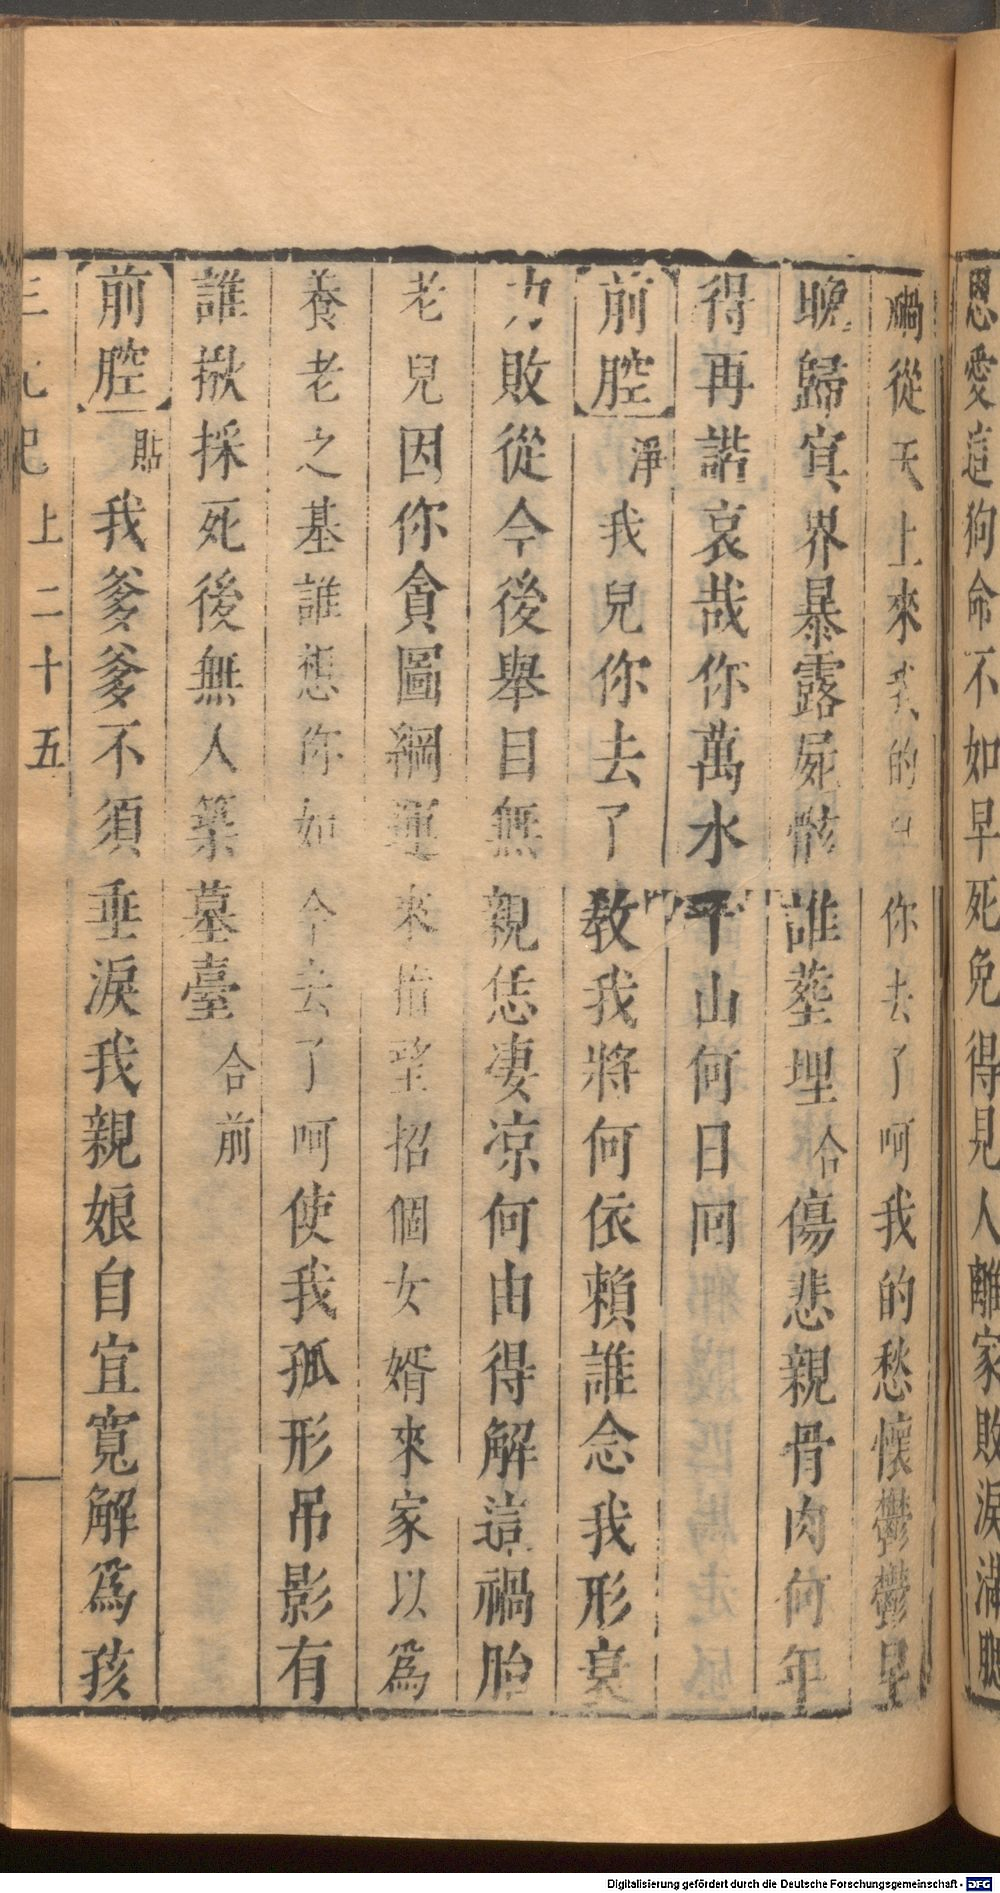 恩愛這狗命不如早死免得見人離家敗淚滿腮
禍從天上來我的 你去了呵我的愁懷鬱鬱早
晚歸宜界暴露屍骸誰葬埋合傷悲親骨肉何年
得再諧哀哉你萬水千山何日囘
前腔淨我兒你去了教我將何依賴誰念我形衰
力敗從今後舉目無親恁凄凉何由得解這禍胎
老兒因你貪圖綱運來 望招個女婿來家以爲
養老之基誰想你如今去了呵使我孤形吊影有
誰揪採死後無人築墓臺合前
前腔貼我爹爹不須垂淚我親娘自宜寬解爲孩
三元記 上 二十五
Digitalisierung gefördert durch die Deutsche Forschungsgemeinschaft - DFG